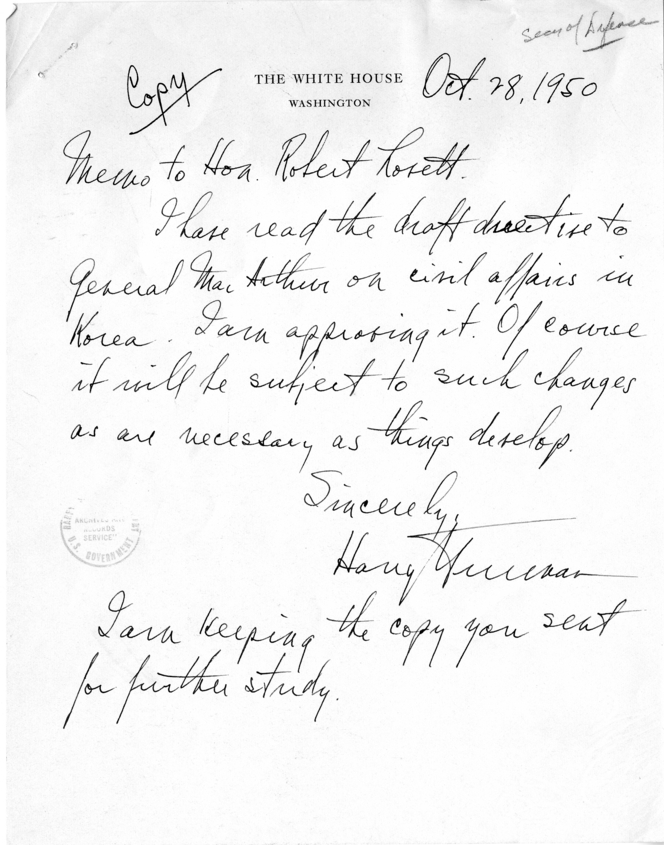 Secy of Defense
Copy
THE WHITE HOUSE
WASHINGTON
Oct. 28, 1950
Memo to Hon. Robert Lovett.
I have read the draft directive to
General MacArthur on civil affairs in
Korea. I am approving it. Of course
it will be subject to such changes
as are necessary as things develop.
Sincerely,
Harry Truman
RECORDS
SERVICE
U.S. GOVERNMENT
I am keeping the copy you sent
for further study.